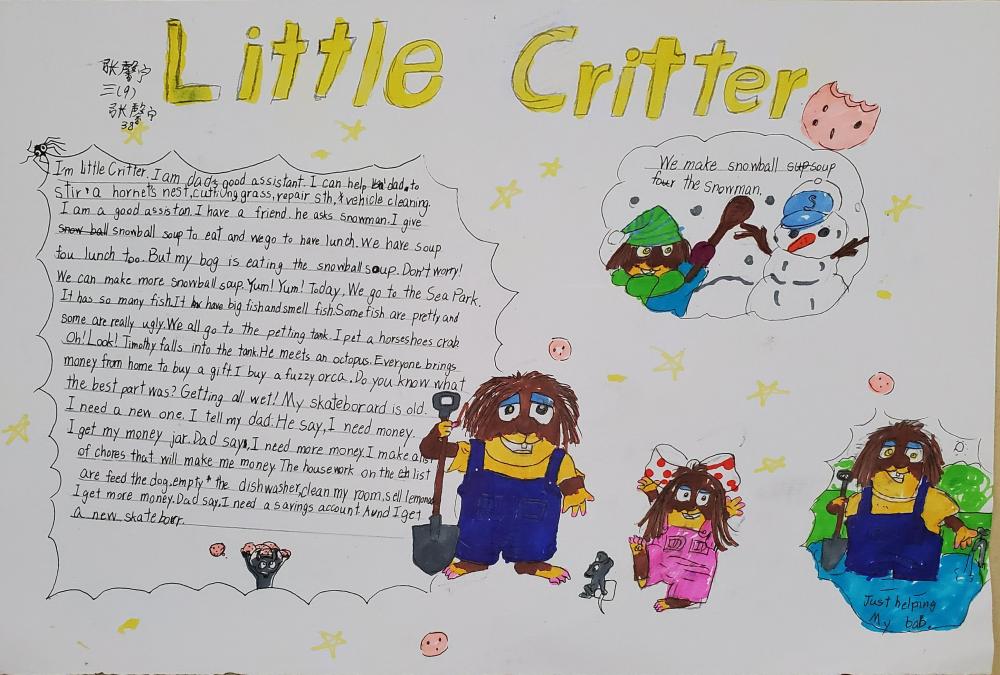 Little Critter
张馨宁
三(9)
张馨宁
38
I'm Little Critter. I am dad's good assistant. I can help dad to
stir a hornets nest, cutting grass, repair sth, vehicle cleaning.
I am a good assistan. I have a friend. he asks snowman. I give
snow ball snowball soup to eat and we go to have lunch. We have soup
fou lunch too. But my bog is eating the snowball soup. Don't worry!
We can make more snowball soup. Yum! Yum! Today, We go to the Sea Park.
It has so many fish. It have big fish and smell fish. Some fish are pretty and
some are really ugly. We all go to the petting tank. I pet a horseshoes crab.
Oh! Look! Timothy falls into the tank. He meets an octopus. Everyone brings
money from home to buy a gift. I buy a fuzzy orca. Do you know what
the best part was? Getting all wet! My skateborard is old.
I need a new one. I tell my dad. He say, I need money.
I get my money jar. Dad say, I need more money. I make a list
of chores that will make me money. The housework on the list
are feed the dog, empty the dishwasher, clean my room, sell lemonade
I get more money. Dad say, I need a savings account. And I get
a new skateborr.
We make snowball sup soup
four the snowman.
S
Just helping
My bab.